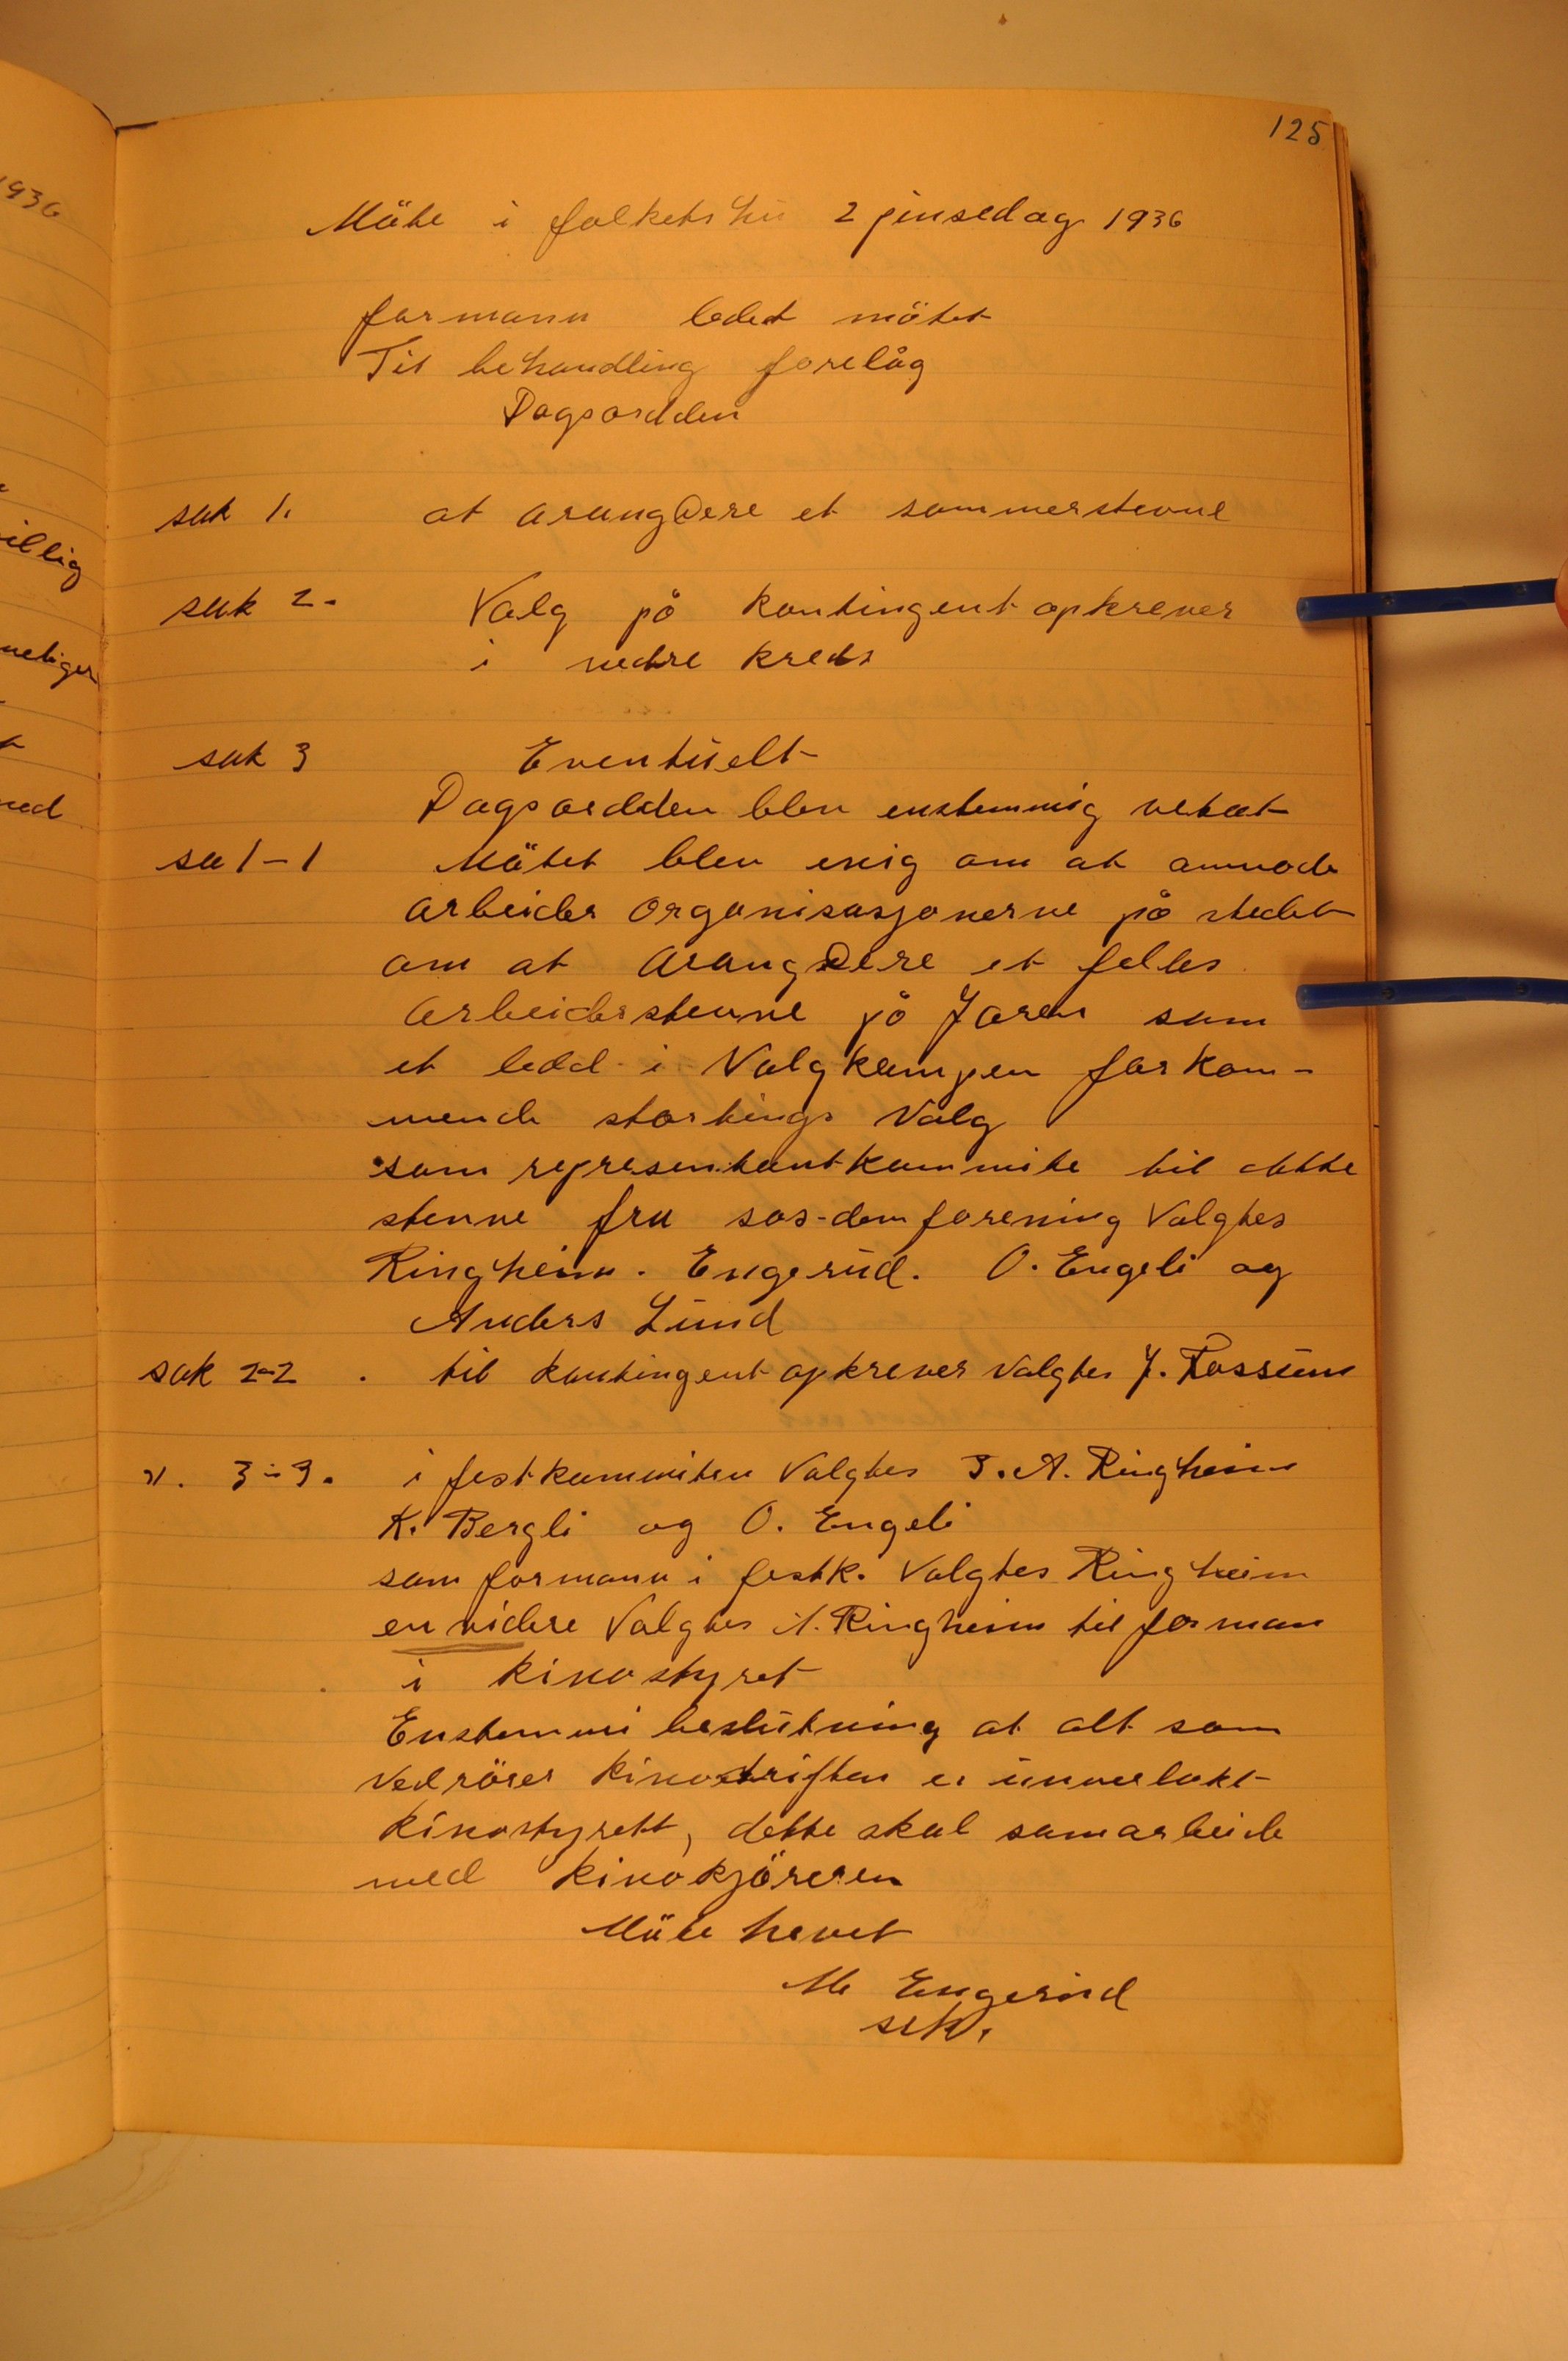 125
1936
Möte i folkets hus 2 pinsedag 1936
formann ledet mötet
Til behandling forelåg
Dagsordden
sak 1. at arangere et sommerstevne
sak 2. Valg på kontingent opkrever
i nedre kreds
sak 3 Eventuelt
Dagsordden blev enstemmig vetat
sa 1-1 Mötet blev enig om at anmode
arbeider organisasjonerne på stedet
om at arangere et felles
arbeiderstevne på Jaren som
et ledd i Valgkampen for kom-
mende stortings Valg
som representantkommite til dette
stevne fra sos-dem forening Valgtes
Ringheim. Engerud. O. Engeli og
Anders Lund
sak 2-2 . til kontingent opkrever Valgtes J. Rossum
". 3-3. i festkommiten Valgtes J. A. Ringheim
K. Bergli og O. Engeli
som formann i festk. Valgtes Ringheim
en videre Valgtes A. Ringheim til forman
i kinostyret
Enstemmi beslutning at alt som
Vedrörer kinodriften er unverlatt
kinostyrett, dette skal samarbeide
med kinokjöreren
Möte hevet
M Engerud
sekr.
illig
neliger
ned